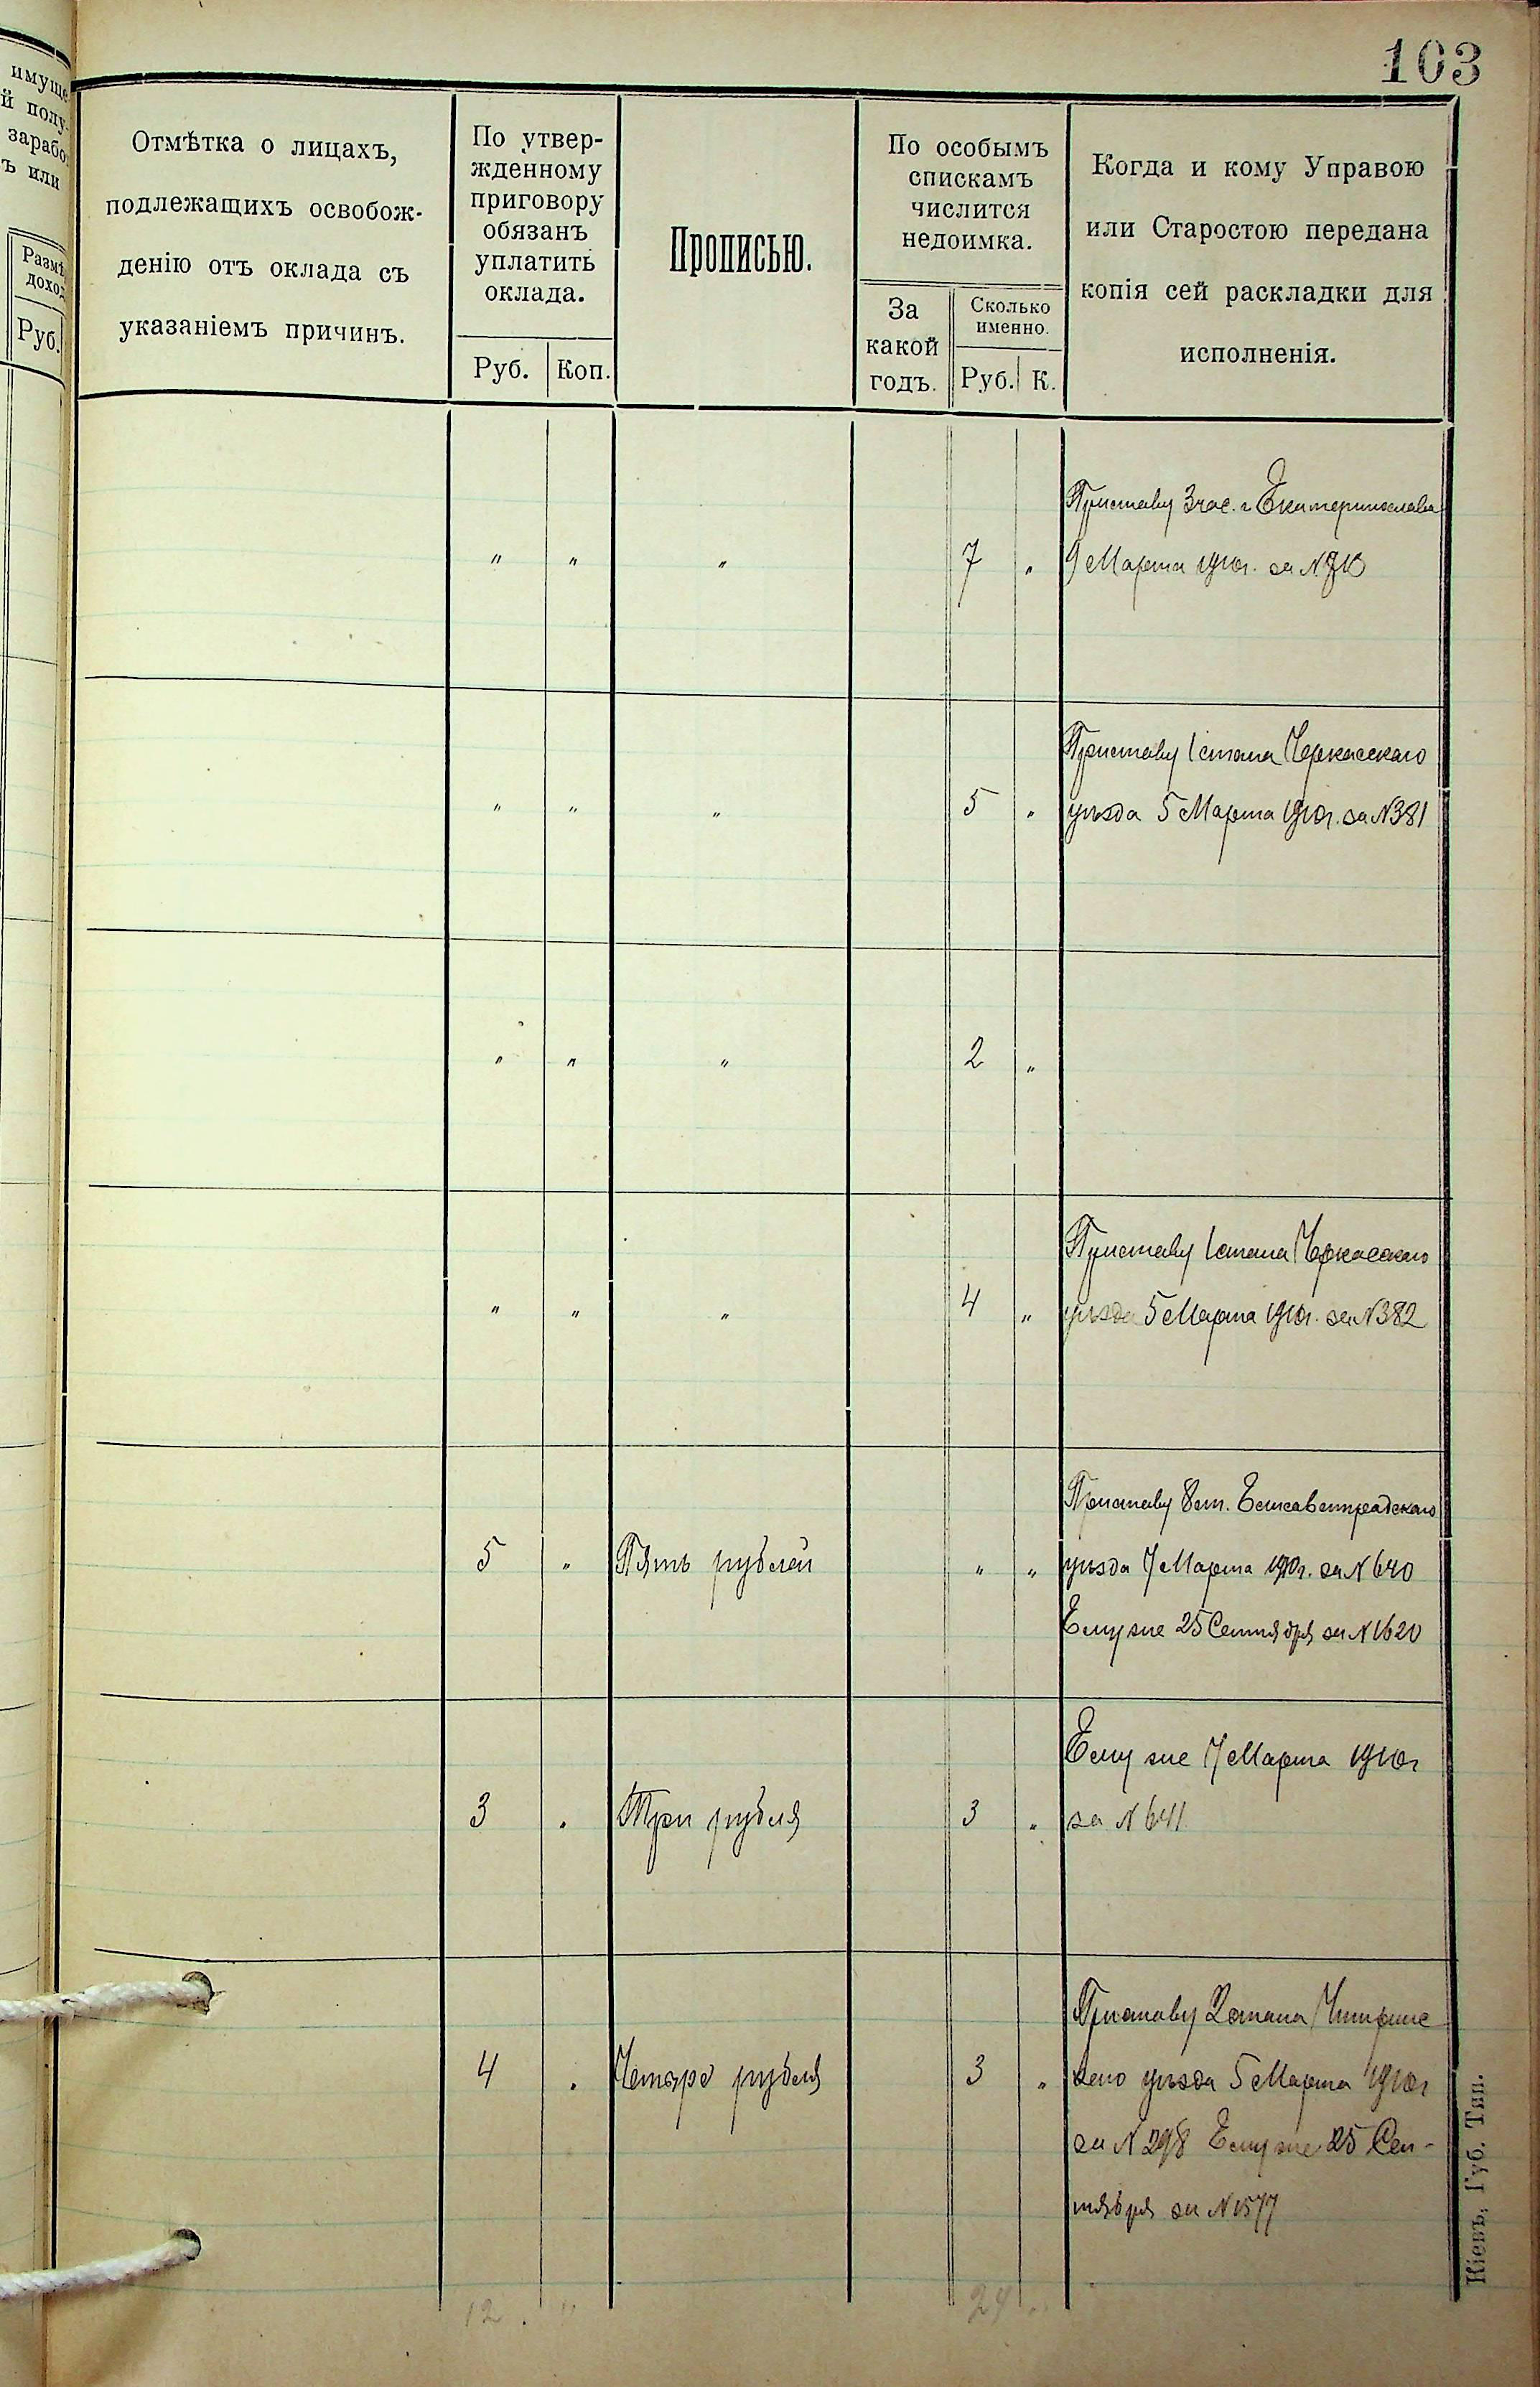 103
имуще
й полу-
зарабо
ъ или
Размѣ
доход
Руб.
Отмѣтка о лицахъ,
подлежащихъ освобож-
денію отъ оклада съ
указаніемъ причинъ.
По утвер-
жденному
приговору
обязанъ
уплатить
оклада.
Руб. Коп.
Прописью.
По особымъ
спискамъ
числится
недоимка.
За
какой
годъ.
Сколько
именно.
Руб. К.
Когда и кому Управою
или Старостою передана
копія сей раскладки для
исполненія.
Приставу 3 час. г. Екатеринослава
" " " 7 " 9 Марта 1910г. за №
Приставу 1 стана Черкасскаго
" " " 5 " уѣзда 5 Марта 1910г. за №381
" " " 2 "
Приставу 1 стана Черкасскаго
" " " 4 " уѣзда 5 Марта 1910г. за №382
Приставу 8 ст. Елисаветградскаго
5 " Пять рублей " " уѣзда 7 Марта 1910г. за №640
Ему же 25 Сентября за №1620
Ему же 7 Марта 1910г
3 " Три рубля 3 " за №641
Приставу 2 стана Чигринс
4 " Четыре рубля 3 " каго уѣзда 5 Марта 1910г
за №298 Ему же 25 Сен-
тября за №1577
12 " 24 "
Кіевъ, Губ. Тип.